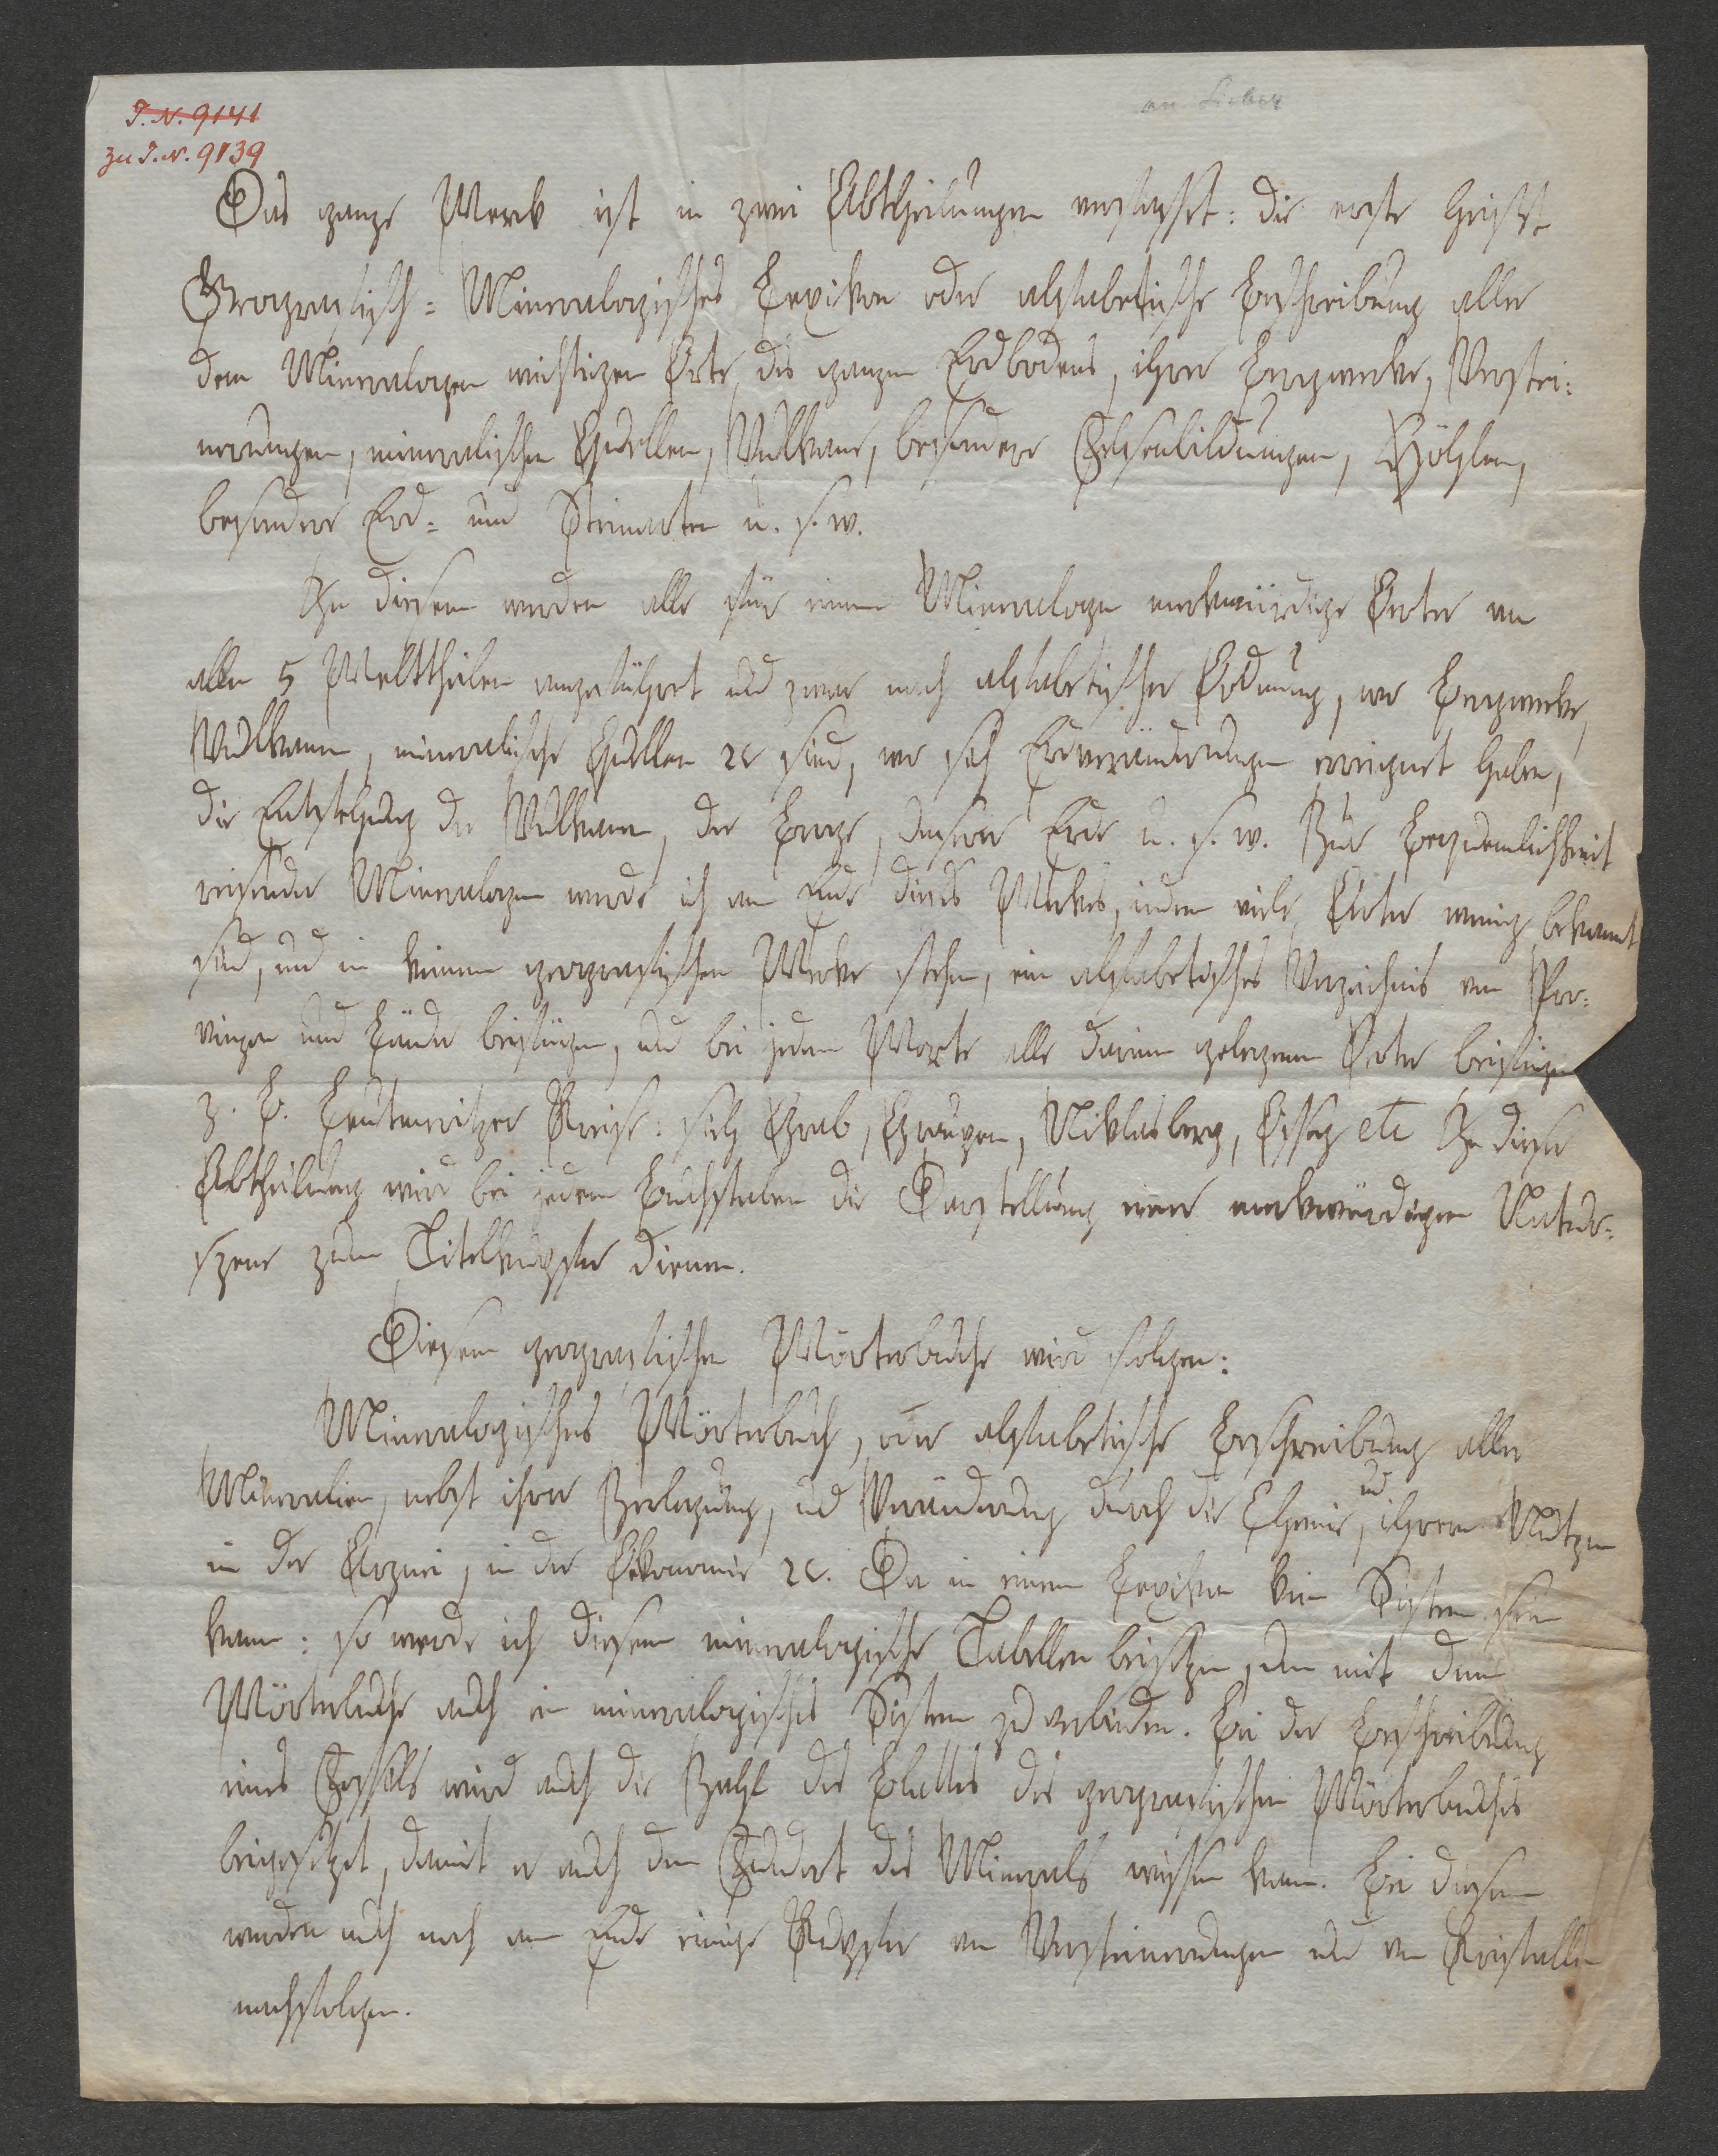 I.N. 9141
zu I.N. 9139
an Sieber
Das ganze Werk ist in zwei Abtheilungen verfasset: die erste heißt
Geographisch=Mineralogisches Lexikon oder alphabetische Beschreibung aller
dem Mineralogen wichtigen Orte des ganzen Erdbodens, ihrer Bergwerke, Verstei=
nerungen, mineralischen Quellen, Vulkane, besondere Felsenbildungen, Höhlen,
besondere Erd= und Steinarten u. s. w.
In diesem werden alle für einen Mineralogen merkwürdige Örter von
allen 5 Welttheilen angeführet und zwar nach alphabetischer Ordnung, wo Bergwerke,
Vulkane, mineralische Quellen ꝛc sind, wo sich Erdveränderungen ereignet haben,
die Entstehung der Vulkane, der Berge, unserer Erde u. s. w. Zur Bequemlichkeit
reisender Mineralogen werde ich am Ende dieses Werkes, indem viele Örter wenig bekannt
sind, und in keinem geographischen Werke stehen, ein alphabetisches Verzeichnis von Pro=
vinzen und Länder beifügen, und bei jedem Worte alle darinn gelegenen Örter beifügen
z. B. Leutmeritzer Kreis: sieh Grab, Graupen, Niklasberg, Ossegg etc In dieser
Abtheilung wird bei jedem Buchstaben die Darstellung einer merkwürdigen Natur=
szene zum Titelkupfer dienen.
Diesem geographischen Wörterbuche wird folgen:
Mineralogisches Wörterbuch, oder alphabetische Beschreibung aller
Mineralien, nebst ihrer Zerlegung, und Veränderung durch die Chemie, und ihrem Nutzen
in der Arznei, in der Ökonomie ꝛc. Da in einem Lexikon kein Sistem sein
kann: so werde ich diesem mineralogische Tabellen beifügen, um mit dem
Wörterbuche auch ein mineralogisches Sistem zu verbinden. Bei der Beschreibung
eines Fossils wird auch die Zahl des Blattes des geographischen Wörterbuches
beigesetzet, damit er auch den Fundort des Minerals wissen kann. Bei diesem
werden auch noch am Ende einige Kupfer von Versteinerungen und von Kristallen
nachfolgen.